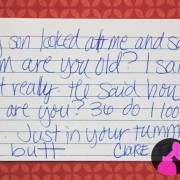 son looked at me and sa
m are you old? I sai
t really. He said how
are you? 36 do I loo
Just in your tumm
butt CLARE